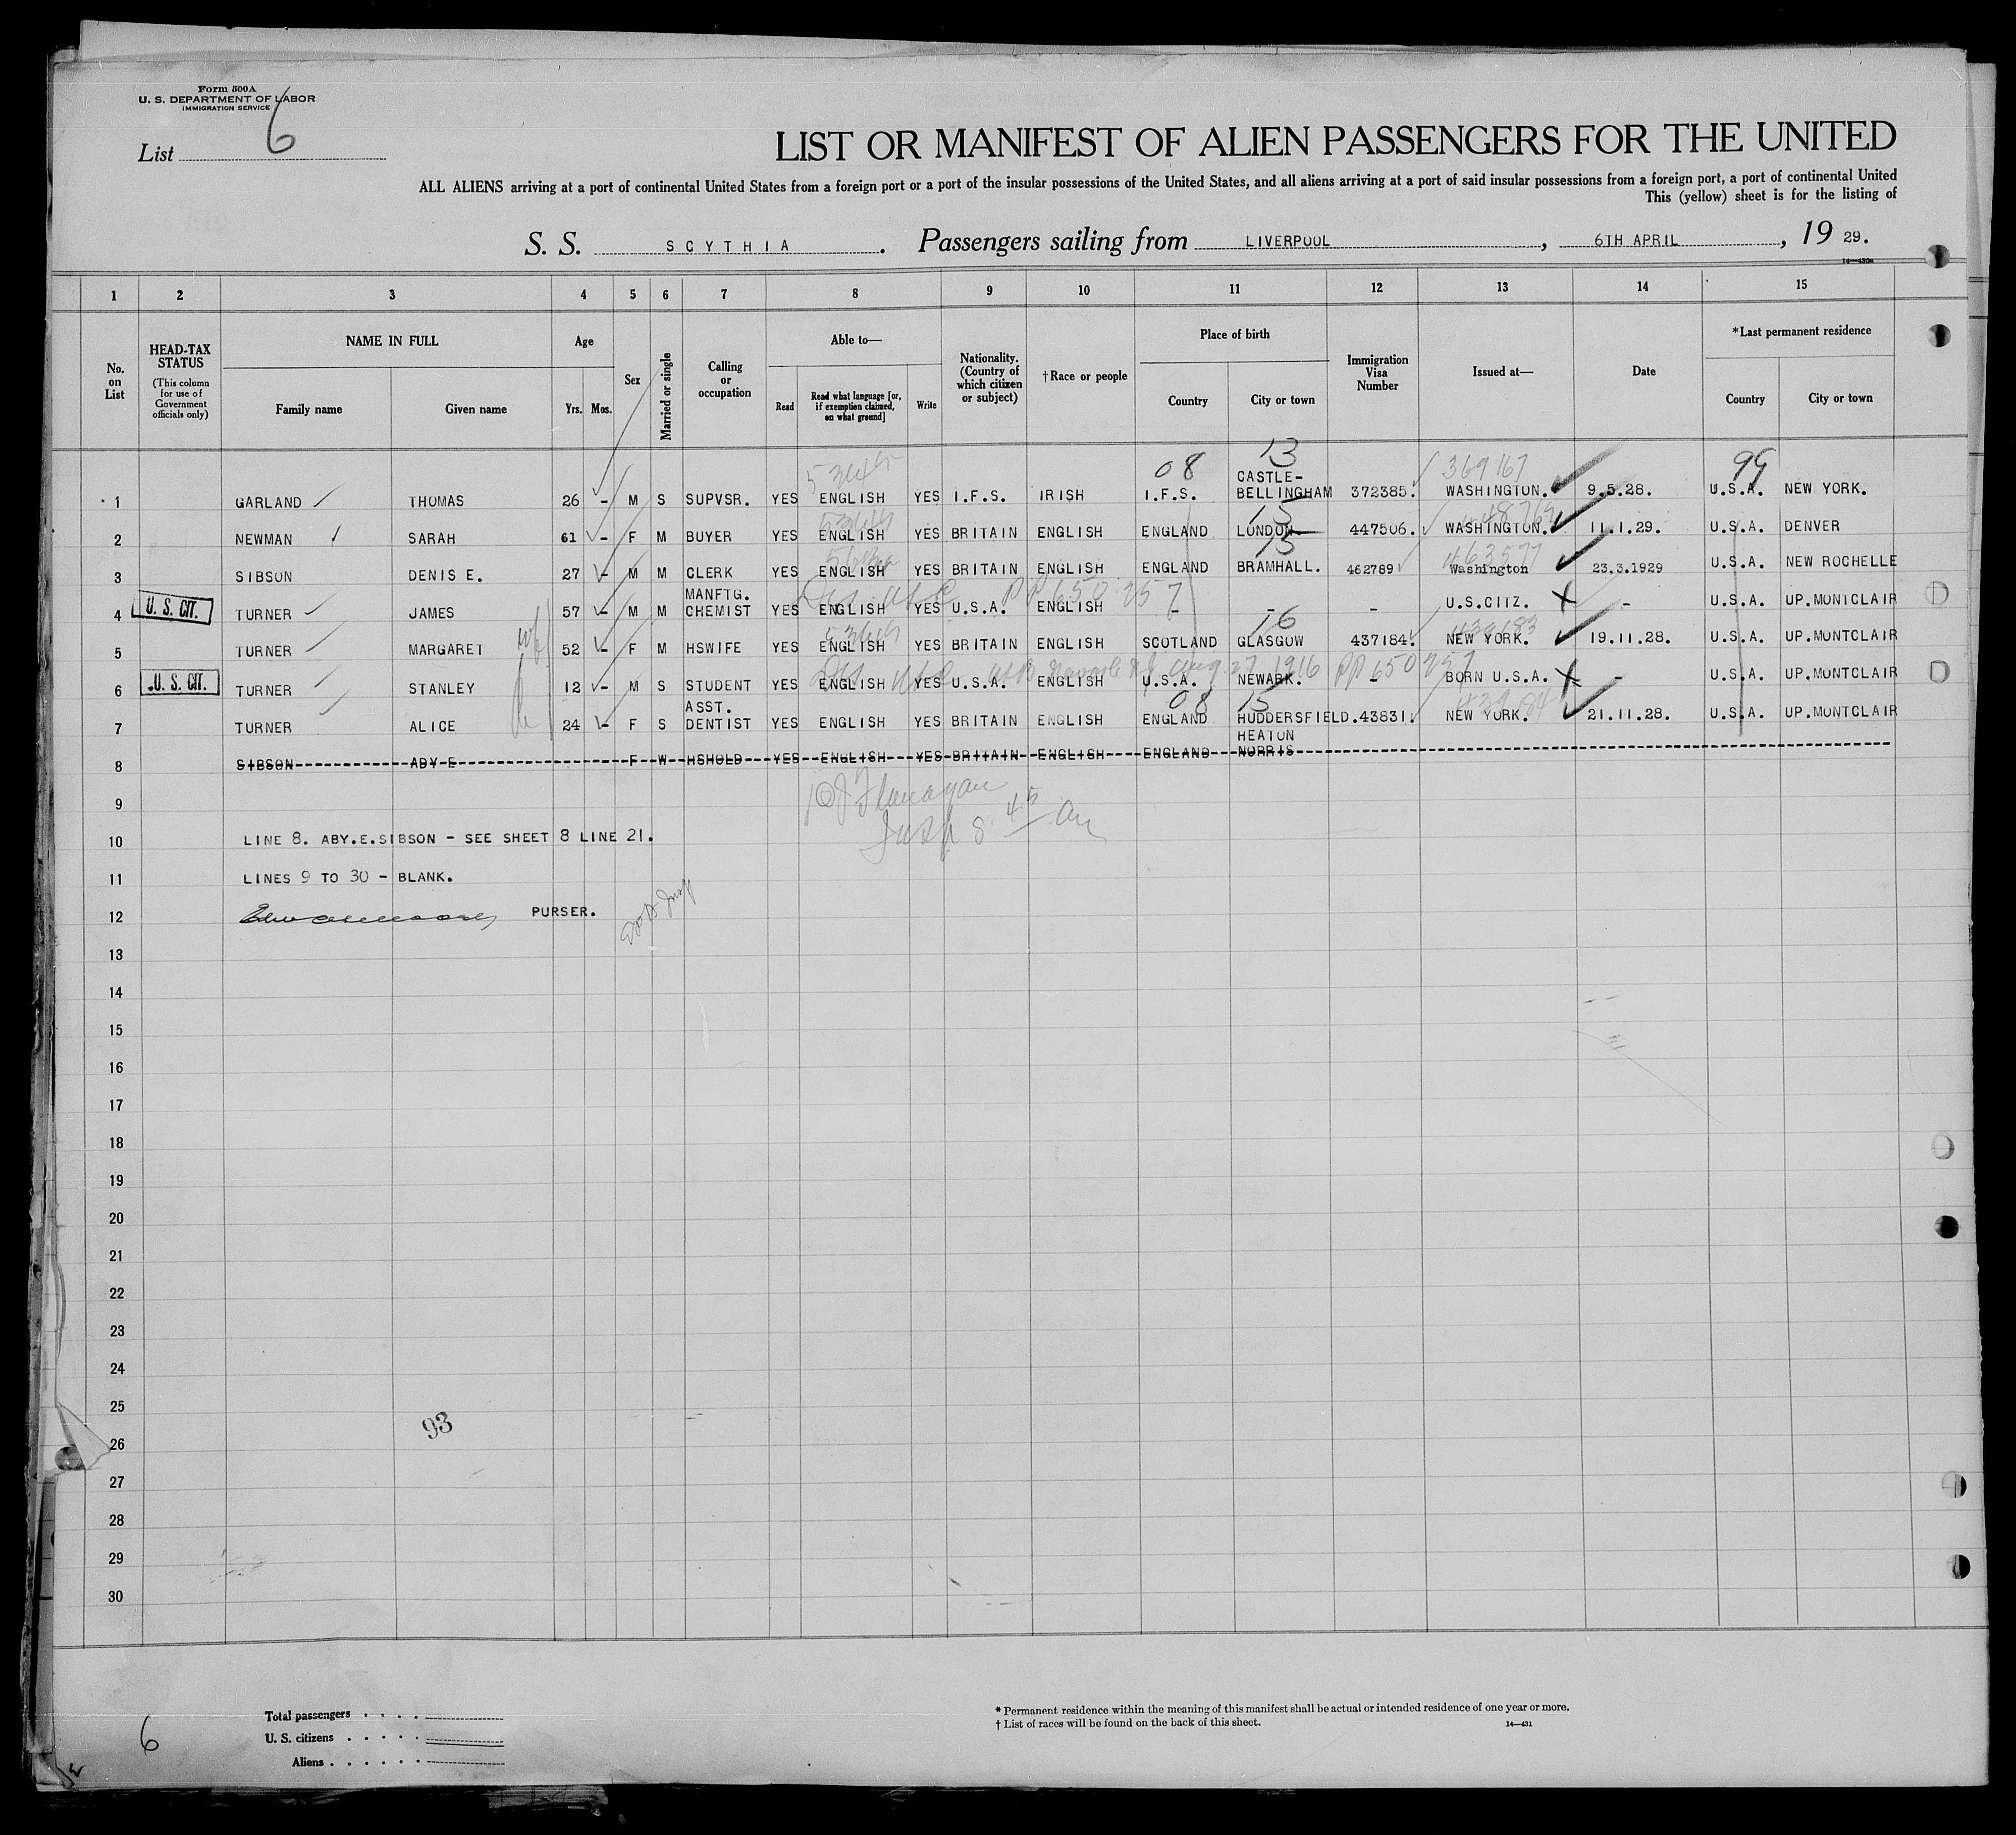 Form 500A
U. S. DEPARTMENT OF LABOR
IMMIGRATION SERVICE
List 6
LIST OR MANIFEST OF ALIEN PASSENGERS FOR THE UNITED
ALL ALIENS arriving at a port of continental United States from a foreign port or a port of the insular possessions of the United States, and all aliens arriving at a port of said insular possessions from a foreign port, a port of continental United
This (yellow) sheet is for the listing of
S. S. SCYTHIA. Passengers sailing from LIVERPOOL, 6TH APRIL, 19 29.
1 2 3 4 5 6 7 8 9 10 11 12 13 14 15
No. on List
HEAD-TAX STATUS (This column for use of Government officials only)
NAME IN FULL Family name Given name
Age Yrs. Mos.
Sex
Married or single
Calling or occupation
Able to— Read Read what language [or, if exemption claimed, on what ground] Write
Nationality. (Country of which citizen or subject)
†Race or people
Place of birth Country City or town
Immigration Visa Number
Issued at—
Date
*Last permanent residence Country City or town
08 13 369167 99
1 GARLAND THOMAS 26 - M S SUPVSR. YES ENGLISH YES I.F.S. IRISH I.F.S. CASTLE-BELLINGHAM 372385. WASHINGTON. 9.5.28. U.S.A. NEW YORK.
15
2 NEWMAN SARAH 61 - F M BUYER YES ENGLISH YES BRITAIN ENGLISH ENGLAND LONDON 447506. WASHINGTON. 11.1.29. U.S.A. DENVER
15 463577
3 SIBSON DENIS E. 27 - M M CLERK YES ENGLISH YES BRITAIN ENGLISH ENGLAND BRAMHALL. 462789 Washington 23.3.1929 U.S.A. NEW ROCHELLE
PP 650257
4 U. S. CIT. TURNER JAMES 57 - M M MANFTG. CHEMIST YES ENGLISH YES U.S.A. ENGLISH - - - U.S.CITZ. - U.S.A. UP.MONTCLAIR
wf 16
5 TURNER MARGARET 52 - F M HSWIFE YES ENGLISH YES BRITAIN ENGLISH SCOTLAND GLASGOW 437184. NEW YORK. 19.11.28. U.S.A. UP.MONTCLAIR
Aug. 27 1916 PP 650257
6 U. S. CIT. TURNER STANLEY 12 - M S STUDENT YES ENGLISH YES U.S.A. ENGLISH U.S.A. NEWARK. - BORN U.S.A. - U.S.A. UP.MONTCLAIR
08 15
7 TURNER ALICE 24 - F S ASST. DENTIST YES ENGLISH YES BRITAIN ENGLISH ENGLAND HUDDERSFIELD. 43831. NEW YORK. 21.11.28. U.S.A. UP.MONTCLAIR
8 SIBSON ABY E F W HSHOLD YES ENGLISH YES BRITAIN ENGLISH ENGLAND HEATON NORRIS
9
Flanagan
Insp 8 45 am
10 LINE 8. ABY.E.SIBSON - SEE SHEET 8 LINE 21.
11 LINES 9 TO 30 - BLANK.
12 PURSER.
13
14
15
16
17
18
19
20
21
22
23
24
25
93
26
27
28
29
30
Total passengers
U. S. citizens
Aliens
6
* Permanent residence within the meaning of this manifest shall be actual or intended residence of one year or more.
† List of races will be found on the back of this sheet.
14—431